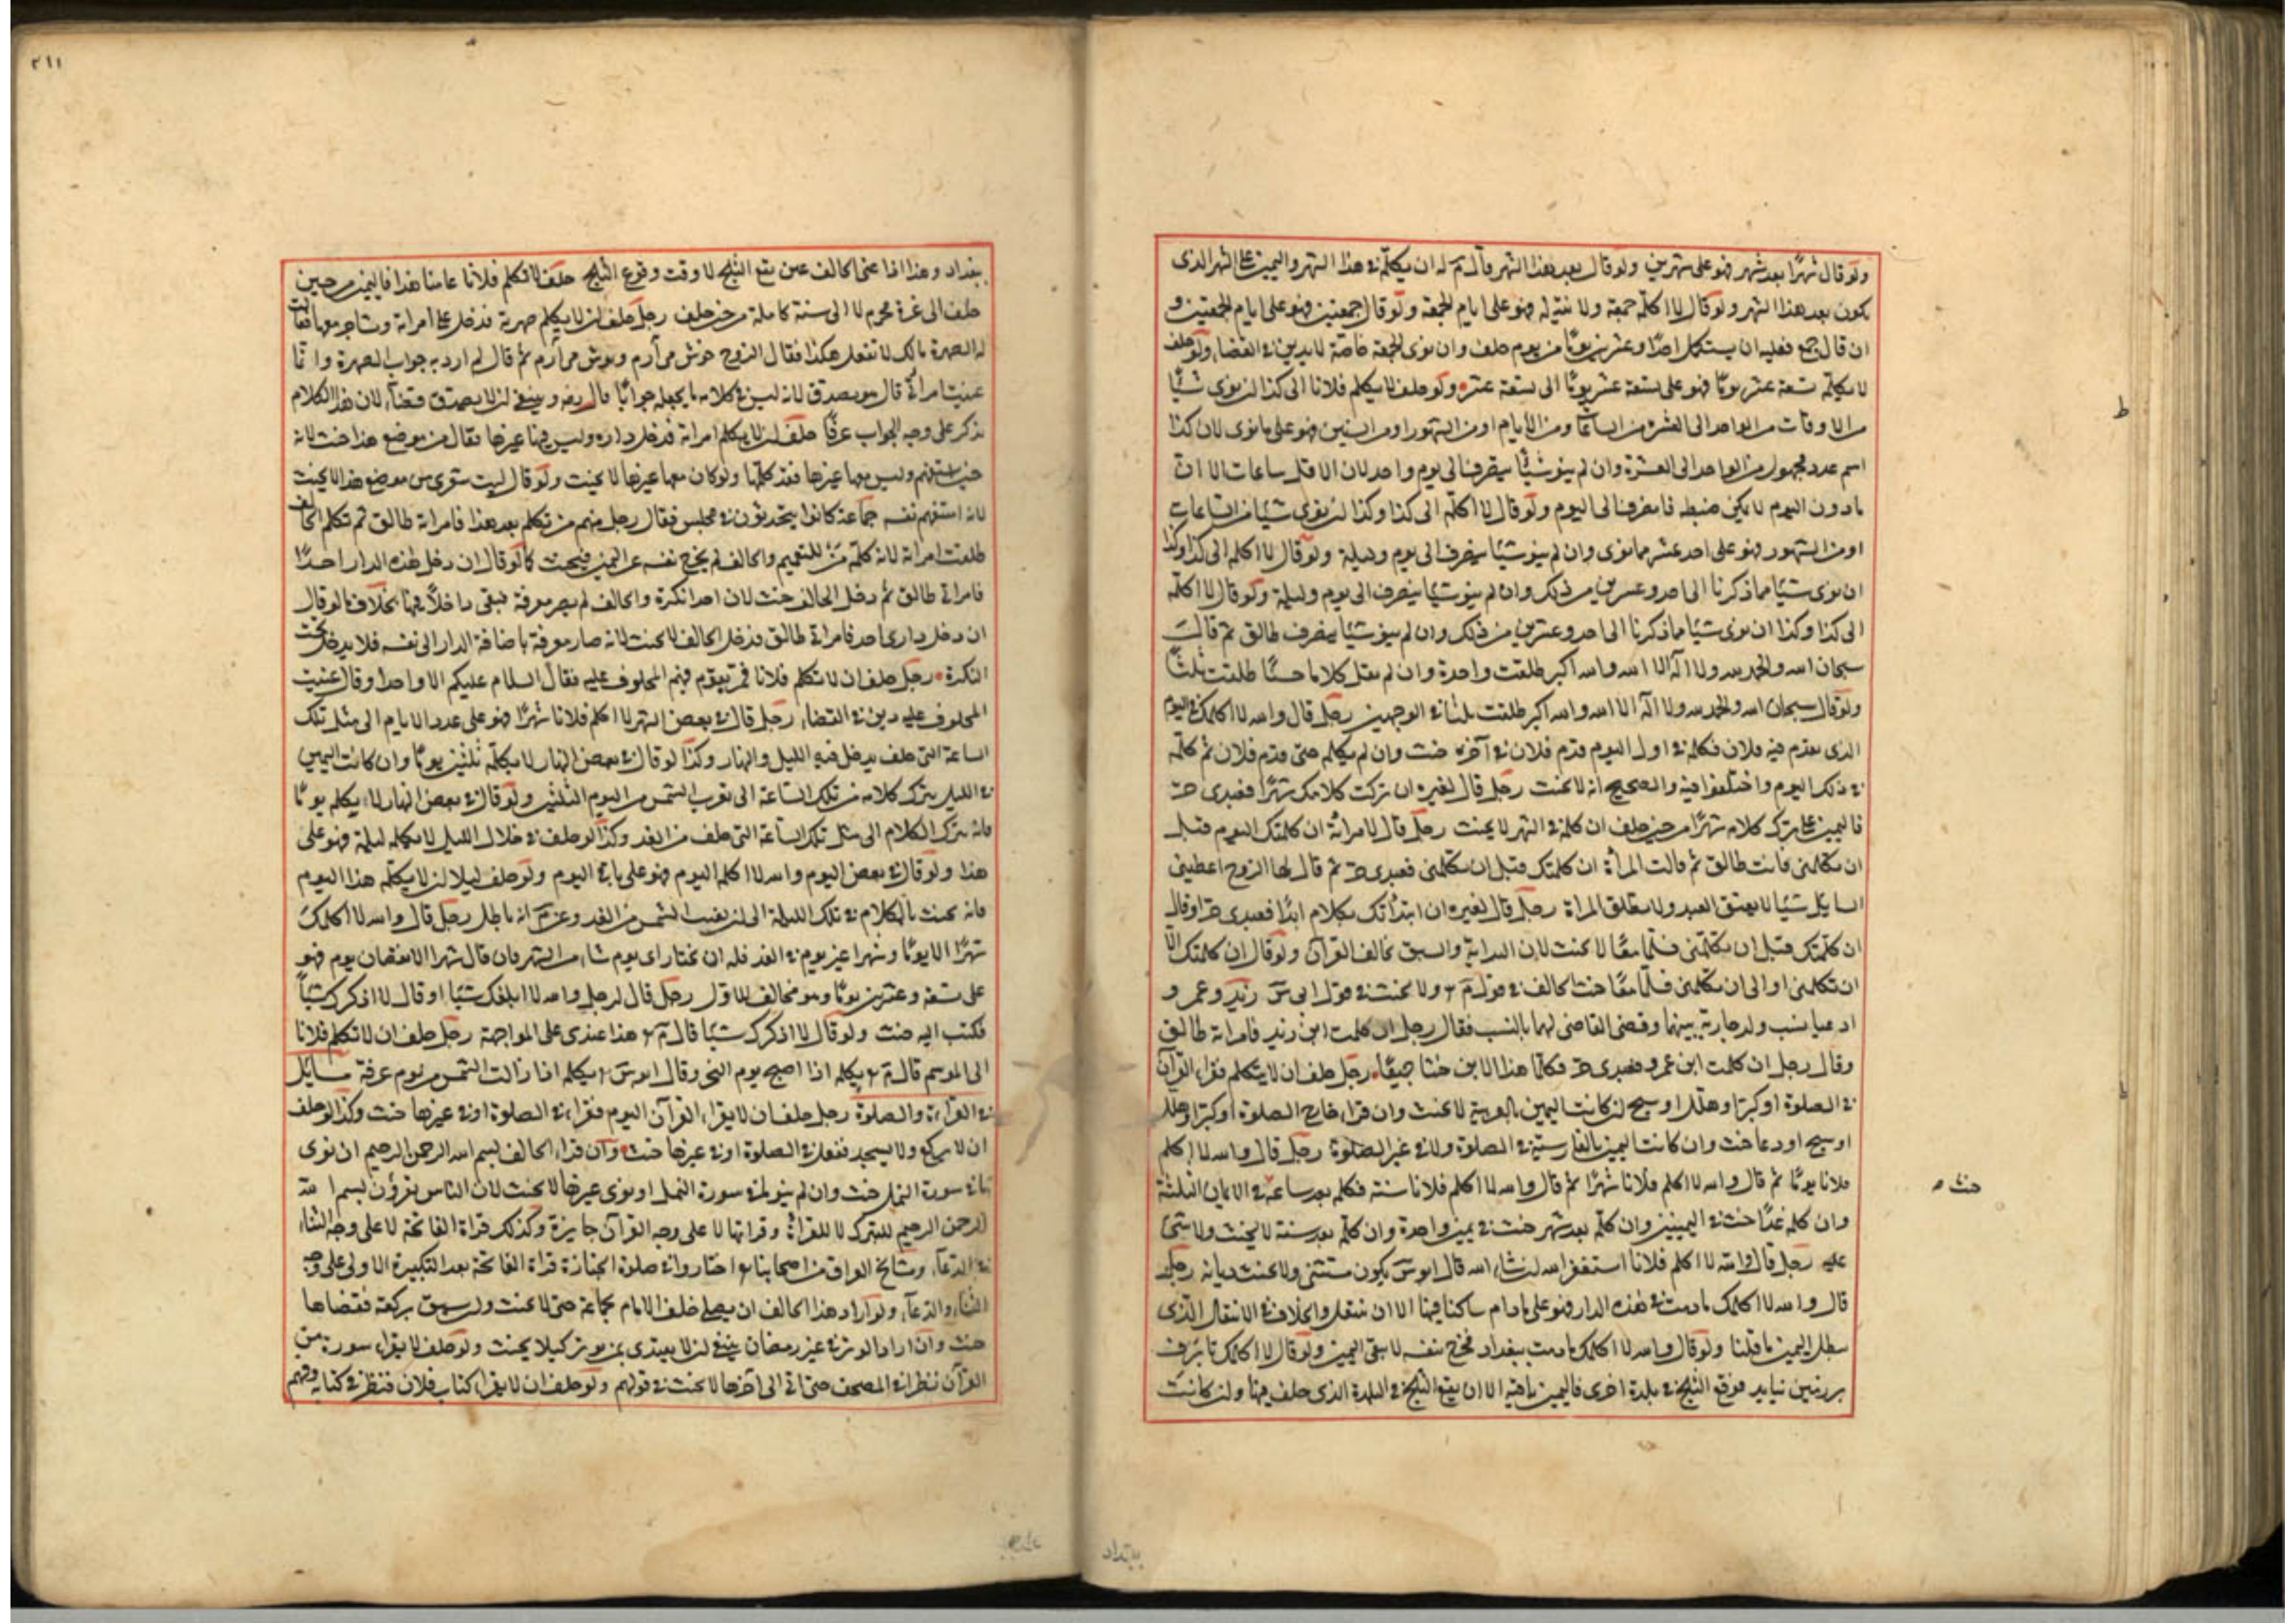 ولو قال شهرًا بعد شهر فهو على شهرين ولو قال بعد هذا الشهر قال م له ان يكلمه في هذا الشهر واليمين على الشهر الذى
يكون بعد هذا الشهر ولو قال لا اكلمه جمعة ولا نية له فهو على ايام الجمعة ولو قال جمعتين فهو على ايام الجمعتين و
ان قال جمع فعليه ان يستكمل احدًا وعشرين يومًا من يوم حلف وان نوى الجمعة خاصة لا يدين في القضاء ولو حلف
لا يكلمه تسعة عشر يومًا فهو على تسعة عشر يومًا الى تسعة عشر ولو حلف لا يكلم فلانا الى كذا ان نوى شيئًا
من الاوقات من الواحد الى العشرة من الساعات او من الايام او من الشهور او من السنين فهو على ما نوى لان كذا
اسم عدد مجهول من الواحد الى العشرة وان لم ينو شيئًا يصرف الى يوم واحد لان الاقل ساعات الا ان
ما دون اليوم لا يمكن ضبطه فانصرف الى اليوم ولو قال لا اكلمه الى كذا وكذا ان نوى شيئا من الساعات
او من الشهور فهو على احد عشر مما نوى وان لم ينو شيئًا يصرف الى يوم وليلة ولو قال لا اكلمه الى كذا وكذا
ان نوى شيئا مما ذكرنا الى احد وعشرين من ذلك وان لم ينو شيئا ينصرف الى يوم وليلة ولو قال لا اكلمه
الى كذا وكذا ان نوى شيئا مما ذكرنا الى احد وعشرين من ذلك وان لم ينو شيئًا يصرف طالق ثم قالت
سبحان الله والحمد لله ولا اله الا الله والله اكبر طلقت واحدة وان لم يقل كلاما حسنًا طلقت ثلثًا
ولو قال سبحان الله والحمد لله ولا اله الا الله والله اكبر طلقت ثلثا في الوجهين رجل قال والله لا اكلمك في اليوم
الذى يقدم فيه فلان فكلمه في اول اليوم قدم فلان في آخره حنث وان لم يكلمه حتى قدم فلان ثم كلمه
في ذلك اليوم واختلفوا فيه والصحيح انه لا يحنث رجل قال لغيره ان تركت كلامك شهرًا فعبدى حر
فاليمين على ترك كلامه شهرًا من حين حلف ان كلمه في الشهر لا يحنث رجل قال لامرأته ان كلمتك اليوم قبل
ان تكلمنى فانت طالق ثم قالت المرأة ان كلمتك قبل ان تكلمنى فعبدى حر ثم قال لها الزوج اعطينى
السايل شيئا لا يعتق العبد ولا تطلق المراة رجل قال لغيره ان ابتدأتك بكلام ابدًا فعبدى حر او قال
ان كلمتك قبل ان تكلمنى فسلما معًا لا يحنث لان البداية والسبق يخالف القران ولو قال ان كلمتك الا
ان تكلمنى او الى ان تكلمنى فسلما معًا حنث الحالف في قول م ولا يحنث في قول ابى س زيد وعمرو
ادعيا نسب ولد جارية بينهما وقضى القاضى لهما بالنسب فقال رجل ان كلمت ابن زيد فامراته طالق
وقال رجل ان كلمت ابن عمرو فعبدى حر فكلما هذا الابن حنثا جميعًا رجل حلف ان لا يتكلم فقراء القرآن
في الصلوة او كبر او هلل او سبح ان كانت اليمين بالعربية لا يحنث وان قراء خارج الصلوة او كبر او هلل
او سبح او دعا حنث وان كانت اليمين بالفارسية في الصلوة ولا في غير الصلوة رجل قال والله لا اكلم
فلانا يومًا ثم قال والله لا اكلم فلانا شهرًا ثم قال والله لا اكلم فلانا سنة فكلمه بعد ساعة في الايمان الثلثة
وان كلمه غدًا حنث في اليمينين وان كلمه بعد شهر حنث في يمين واحدة وان كلمه بعد سنة لا يحنث ولا شئ
عليه رجل قال والله لا اكلم فلانا استغفر الله ان شاء الله قال ابو س يكون مستثنى ولا يحنث ديانة رجل
قال والله لا اكلمك ما دمت في هذه الدار فهو على ما دام ساكنا فيها الا ان ينتقل واختلاف في الانتقال الذى
يبطل اليمين ما قلنا ولو قال والله لا اكلمك ما دمت ببغداد فخرج بنفسه لا يبقى اليمين ولو قال لا اكلمك تا برف
بر زمين نيايد فوقع الثلج في بلدة اخرى فاليمين باقية الا ان يقع الثلج في البلدة الذى حلف فيها وان كانت
ط
حنث
ببغداد
٢١١
ببغداد وهذا اذا عنى الحالف عين يقع الثلج لا وقت وقوع الثلج حلف لا تكلم فلانا عامنا هذا فاليمين من حين
حلف الى غرة محرم لا الى سنة كاملة من حين حلف رجل حلف ان لا يكلم صهرته فدخل على امراته وتشاجر معها فقالت
له الصهرة مالك لا تفعل هكذا فقال الزوج خوش مى آرم وبوش مى آرم ثم قال لم ارد به جواب الصهرة وانما
عنيت امراتى قال هو يصدق لانه ليس في كلامه ما يجعله جوابًا قال رضه وينبغى ان لا يصدق قضاء لان هذا الكلام
يذكر على وجه الجواب عرفًا حلف ان لا يكلم امراته فدخل داره وليس فيها غيرها فقال من يوضع هذا حنث لانه
حين استفهم وليس معها غيرها فقد كلمها ولو كان معها غيرها لا يحنث ولو قال ليت شعرى من موضع هذا لا يحنث
لانه استفهم نفسه جماعة كانوا يتحدثون في مجلس فقال رجل منهم من تكلم بعد هذا فامراته طالق ثم تكلم الحالف
طلقت امراته لانه كلمة مَنْ للتعميم والحالف لم يخرج نفسه عن اليمين فيحنث كما لو قال ان دخل هذه الدار احدًا
فامراتى طالق ثم دخل الحالف حنث لان احدا نكرة والحالف لم يصر معرفة فبقى داخلًا فيها بخلاف ما لو قال
ان دخل دارى احد فامراتى طالق فدخل الحالف لا يحنث لانه صار معرفة باضافة الدار الى نفسه فلا يدخل تحت
النكرة رجل حلف ان لا تكلم فلانا فمر بقوم فيهم المحلوف عليه فقال السلام عليكم الا واحدا وقال عنيت
المحلوف عليه دين في القضاء رجل قال في بعض الشهر لا اكلم فلانا شهرًا فهو على عدد الايام الى مثل تلك
الساعة التى حلف يدخل فيه الليل والنهار وكذا لو قال في بعض النهار لا يكلمه ثلثين يومًا وان كانت اليمين
في الليل يترك كلامه من تلك الساعة الى تغرب الشمس من اليوم الثلثين ولو قال في بعض النهار لا يكلمه يومًا
فانه يترك الكلام الى مثل تلك الساعة التى حلف من الغد وكذا لو حلف في خلال الليل لا يكلمه ليلة فهو على
هذا ولو قال في بعض اليوم والله لا اكلمه اليوم فهو على باقى اليوم ولو حلف ليلا ان لا يكلمه هذا اليوم
فانه يحنث بالكلام في تلك الليلة الى ان يغيب الشمس من الغد وعن م انه باطل رجل قال والله لا اكلمك
شهرًا الا يومًا وشهرا غير يوم في الغد فله ان يختار اى يوم شاء من الشهر فان قال شهرا الا نقصان يوم فهو
على تسعة وعشرين يومًا وهو مخالف للاول رجل قال لرجل والله لا ابلغك شيئا او قال لا اذكرك شيئًا
فكتب اليه حنث ولو قال لا اذكرك شيئا قال م هذا عندى على المواجهة رجل حلف ان لا تكلم فلانا
الى الموسم قال م يكلمه اذا اصبح يوم النحر وقال ابو س يكلمه اذا زالت الشمس من يوم عرفة مسايل
في القراءة والصلوة رجل حلف ان لا يقراء القرآن اليوم فقراء في الصلوة او في غيرها حنث وكذا لو حلف
ان لا يركع ولا يسجد ففعل في الصلوة او في غيرها حنث وان قراء الحالف بسم الله الرحمن الرحيم ان نوى
ما في سورة النمل حنث وان لم ينو ما في سورة النمل او نوى غيرها لا يحنث لان الناس يقرؤن بسم الله
الرحمن الرحيم للتبرك لا للقراة وقراتها لا على وجه القرآن جايزة وكذلك قراة الفاتحة لا على وجه الثناء
في الدعاء ومشايخ العراق من اصحابنا اختاروا في صلوة الجنازة قراة الفاتحة بعد التكبيرة الاولى على وجه
الثناء والدعاء ولو اراد هذا الحالف ان يصلى خلف الامام بجماعة حتى لا يحنث ولو سبق بركعة فقضاها
حنث وان اراد الوتر في غير رمضان ينبغى ان لا يقتدى بمن يوتر كيلا يحنث ولو حلف لا يقراء سورة من
القرآن فنظر في المصحف حتى اتى الى آخرها لا يحنث في قولهم ولو حلف ان لا يقرا كتاب فلان فنظر في كتابه وفهم